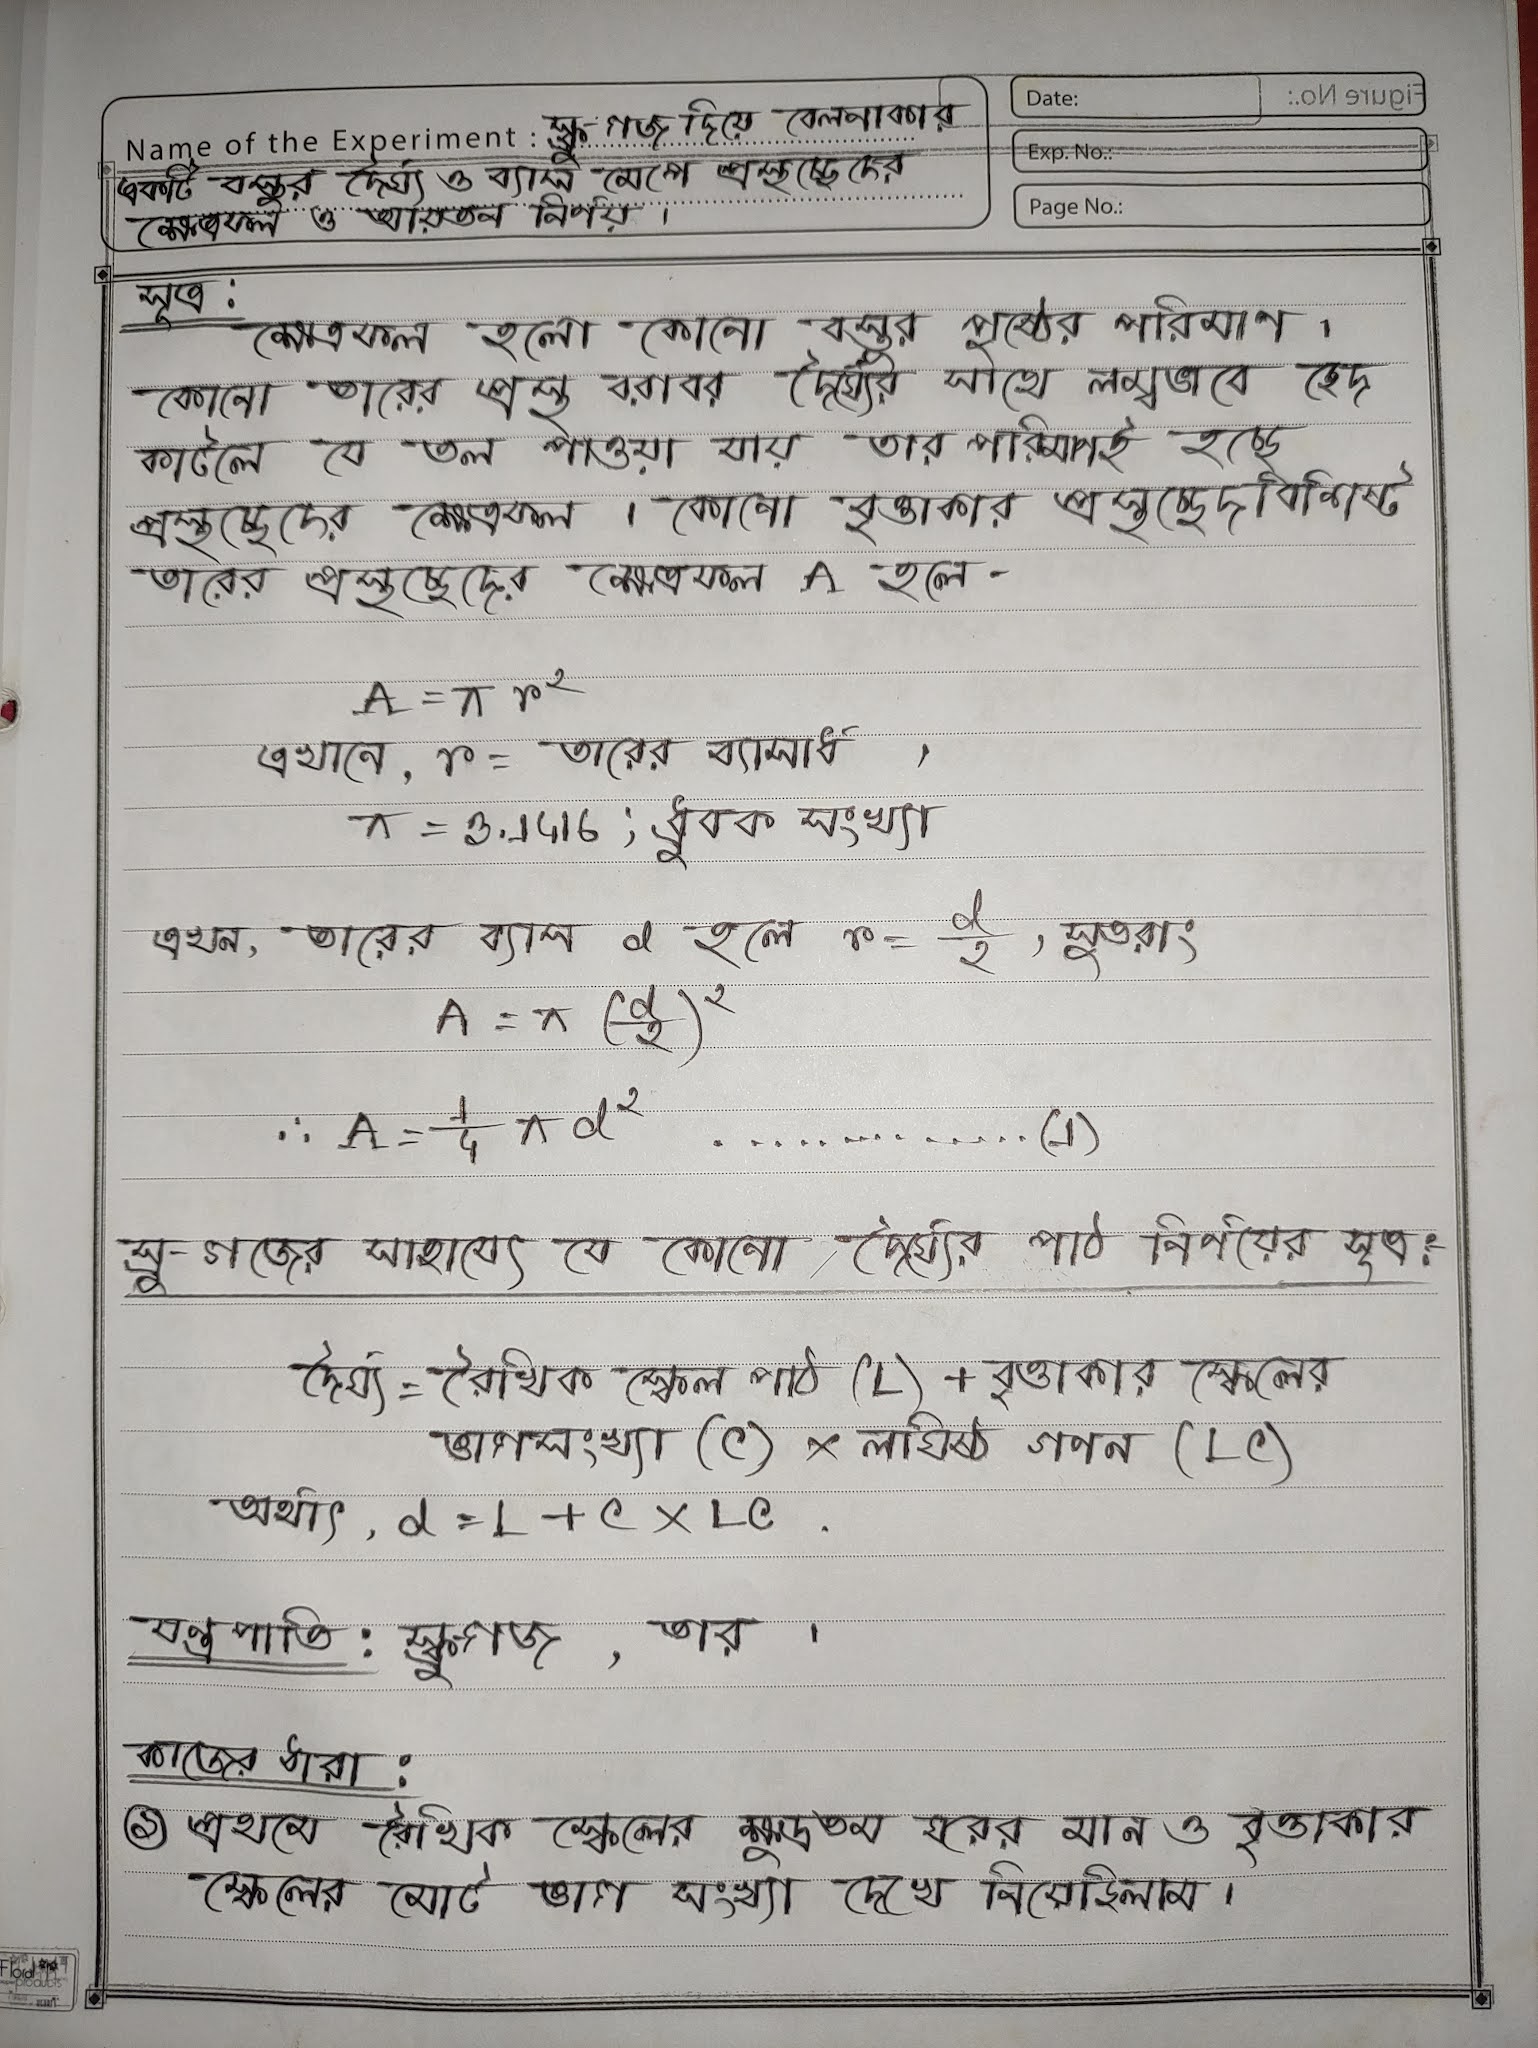 Name of the Experiment : স্ক্রু-গজ দিয়ে বেলনাকার
একটি বস্তুর দৈর্ঘ্য ও ব্যাস মেপে প্রস্থচ্ছেদের
ক্ষেত্রফল ও আয়তন নির্ণয় ।
Date:
Figure No.:
Exp. No.:
Page No.:
সূত্র :
ক্ষেত্রফল হলো কোনো বস্তুর পৃষ্ঠের পরিমাণ ।
কোনো তারের প্রস্থ বরাবর দৈর্ঘ্যের সাথে লম্বভাবে ছেদ
কাটলে যে তল পাওয়া যায় তার পরিমাণই হচ্ছে
প্রস্থচ্ছেদের ক্ষেত্রফল । কোনো বৃত্তাকার প্রস্থচ্ছেদবিশিষ্ট
তারের প্রস্থচ্ছেদের ক্ষেত্রফল A হলে -
A = π r²
এখানে, r = তারের ব্যাসার্ধ ,
π = 3.1416 ; ধ্রুবক সংখ্যা
এখন, তারের ব্যাস d হলে r = d/2 , সুতরাং
A = π (d/2)²
∴ A = 1/4 π d² .............. (1)
স্ক্রু-গজের সাহায্যে যে কোনো দৈর্ঘ্যের পাঠ নির্ণয়ের সূত্র :
দৈর্ঘ্য = রৈখিক স্কেল পাঠ (L) + বৃত্তাকার স্কেলের
ভাগসংখ্যা (C) × লঘিষ্ঠ গণন (LC)
অর্থাৎ, d = L + C × LC .
যন্ত্রপাতি : স্ক্রুগজ , তার ।
কাজের ধারা :
১ প্রথমে রৈখিক স্কেলের ক্ষুদ্রতম ঘরের মান ও বৃত্তাকার
স্কেলের মোট ভাগ সংখ্যা দেখে নিয়েছিলাম ।
Floral
products